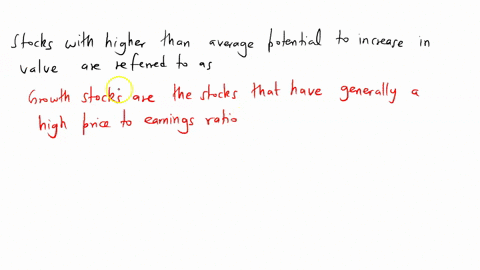 Stocks with higher than average potential to increase in
value are referred to as
Growth stocks are the stocks that have generally a
high price to earnings ratio